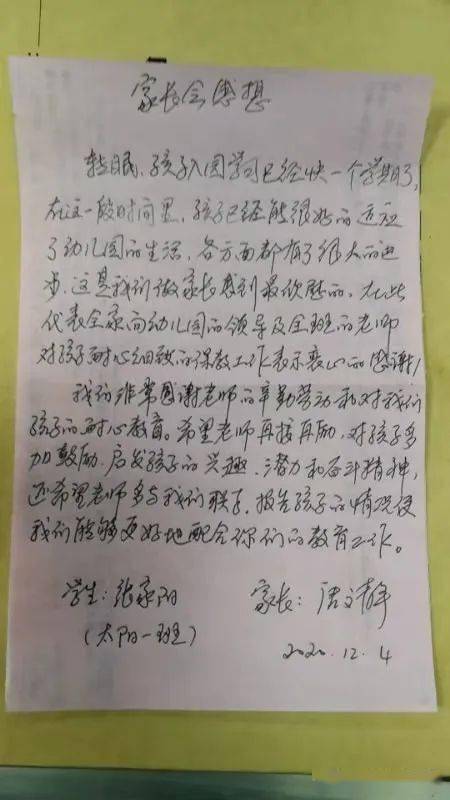 家长会感想
转眼,孩子入园学习已经快一个学期了,
在这一段时间里,孩子已经能很好的适应
了幼儿园的生活,各方面都有了很大的进
步,这是我们做家长感到最欣慰的,在此
代表全家向幼儿园的领导及全班的老师
对孩子耐心细致的保教工作表示衷心的感谢!
我们非常感谢老师的辛勤劳动和对我们
孩子的耐心教育。希望老师再接再励,对孩子多
加鼓励,启发孩子的兴趣、潜力和奋斗精神,
还希望老师多与我们联系,报告孩子的情况使
我们能够更好地配合你们的教育工作。
学生:张家阳 家长:唐文静
(太阳一班) 2020.12.4